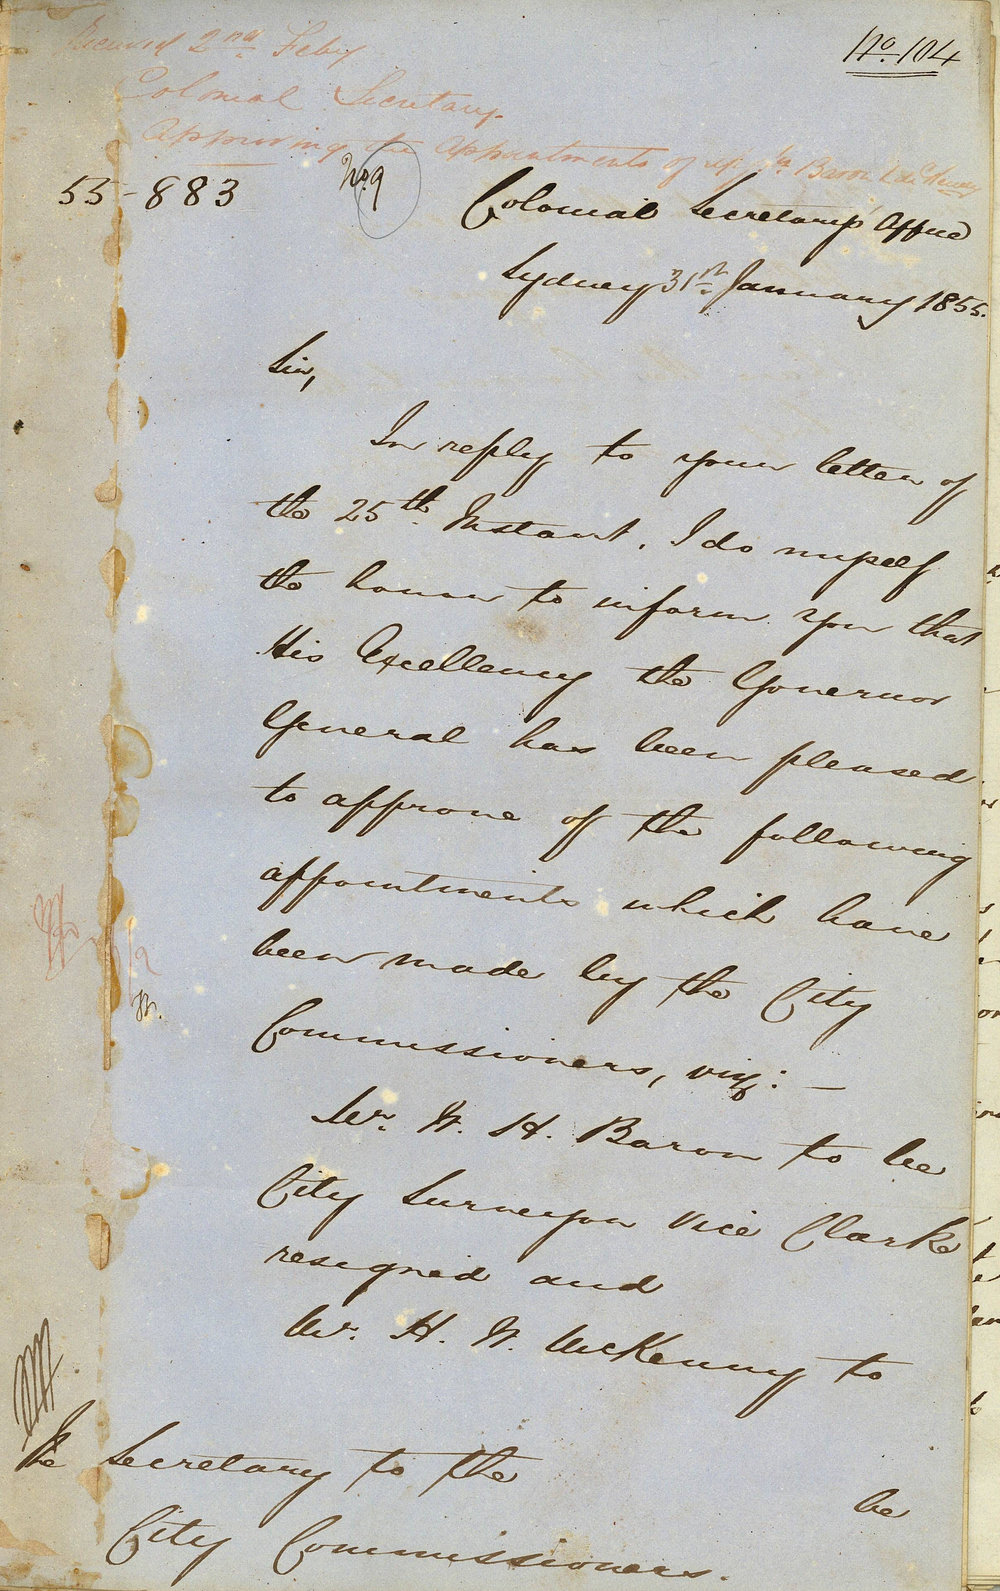 No. 104
Received 2nd Feby
Colonial Secretary.
Approving the Appointments of Baron &
55-883
No. 9
Colonial Secretarys Office
Sydney 31st January 1855.
Sir,
In reply to your letter of
the 25th Instant, I do myself
the honor to inform you that
His Excellency the Governor
General has been pleased
to approve of the following
appointments which have
been made by the City
Commissioners, viz: —
Mr. W. H. Baron to be
City Surveyor vice Clarke
resigned and
Mr. H. W. McKenny to
be
The Secretary to the
City Commissioners.